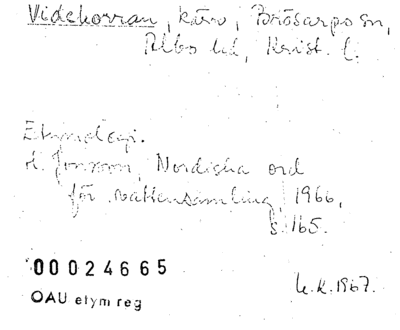 Videkorran, kärr, Brösarps sn,
Albo hd, Krist. l.
Etymologi.
H. Jonsson, Nordiska ord
för vattensamling, 1966,
s. 165.
00024665
OAU etym reg
U.K. 1967.